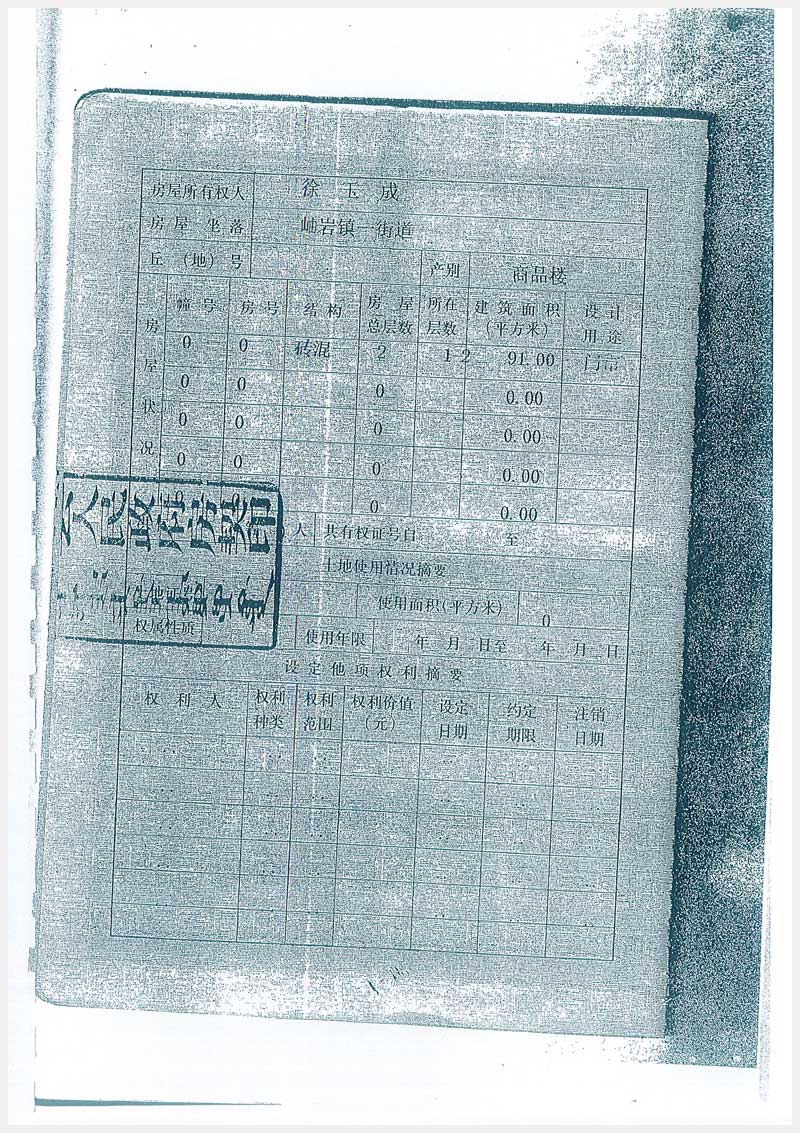 房屋所有权人 徐玉成
房屋坐落 岫岩镇一街道
丘（地）号 产别 商品楼
房屋状况 幢号 房号 结构 房屋总层数 所在层数 建筑面积（平方米） 设计用途
0 0 砖混 2 1 2 91.00 门市
0 0 0 0.00
0 0 0 0.00
0 0 0 0.00
0 0.00
人 共有权证号自 至
土地使用情况摘要
使用面积(平方米) 0
权属性质 使用年限 年 月 日至 年 月 日
设定他项权利摘要
权利人 权利种类 权利范围 权利价值（元） 设定日期 约定期限 注销日期
人民政府房